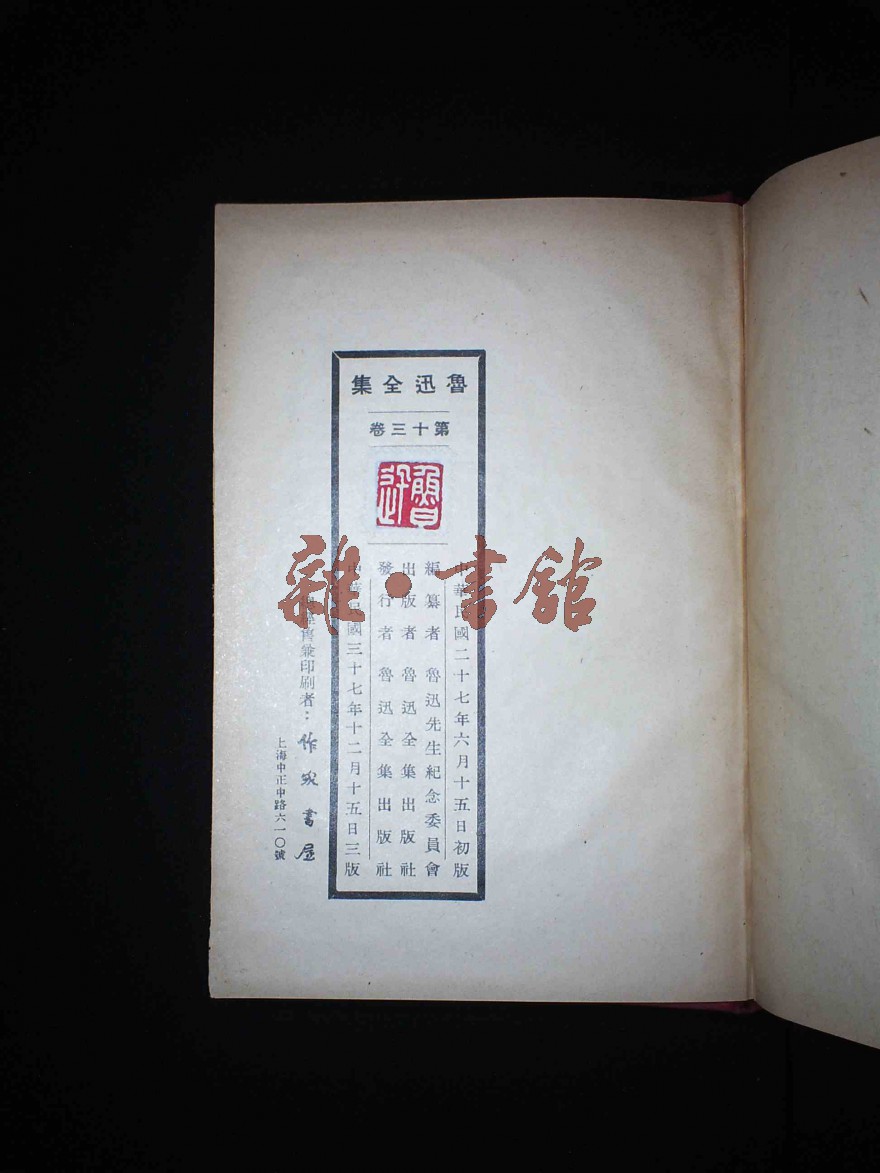 魯迅全集
第十三卷
魯迅
中華民國二十七年六月十五日初版
編纂者 魯迅先生紀念委員會
出版者 魯迅全集出版社
發行者 魯迅全集出版社
中華民國三十七年十二月十五日三版
經售兼印刷者：作家書屋
上海中正中路六一〇號
雜·書館